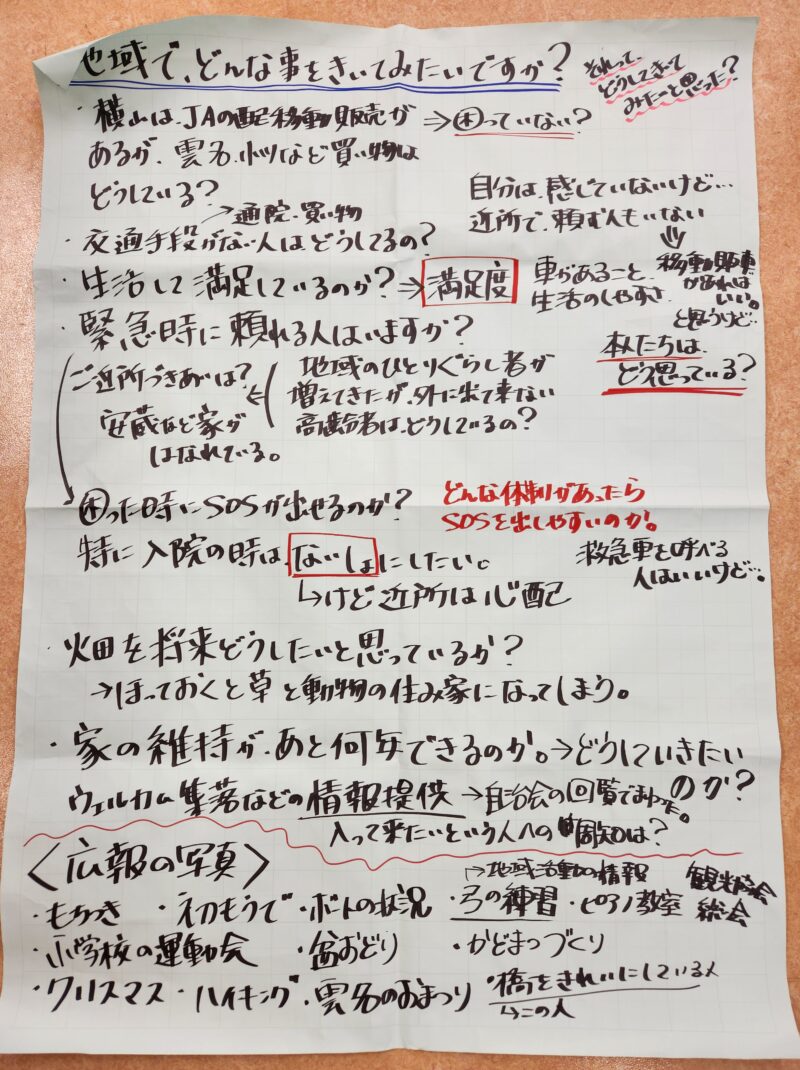 地域で、どんな事をきいてみたいですか?
それって、
どうしてきいて
みたいと思った?
・横山は、JAの移動販売が ⇒困っていない?
あるが、雲名、小川など買い物は
どうしている?
→通院・買い物
・交通手段がない人はどうしてるの?
自分は、感じていないけど…
近所で、頼む人もいない
⇓
移動販売車
があれば
いい。
と思うけど…
・生活して満足しているのか?⇒満足度
車があること、
生活のしやすさ
本人たちは、
どう思っている?
・緊急時に頼れる人はいますか?
ご近所づきあいは?
安蔵など家が
はなれている。
地域のひとりぐらし者が
増えてきたが、外に出て来ない
高齢者は、どうしているの?
困った時にSOSが出せるのか?
どんな体制があったら
SOSを出しやすいのか。
特に入院の時は、ないしょにしたい。
↳けど近所は心配
救急車を呼べる
人はいいけど…。
・畑を将来どうしたいと思っているか?
→ほっておくと草と動物の住み家になってしまう。
・家の維持が、あと何年できるのか。→どうしていきたい
のか?
ウェルカム集落などの情報提供→自治会の回覧でまわった。
入って来たいという人への周知は?
〈広報の写真〉
→地域活動の情報
・もちつき ・初もうで ・ボートの状況 ・弓の練習 ・ピアノ教室
総会
・小学校の運動会 ・盆おどり ・かどまつづくり
・クリスマス ・ハイキング ・雲名のおまつり ・橋をきれいにしている人
↳この人